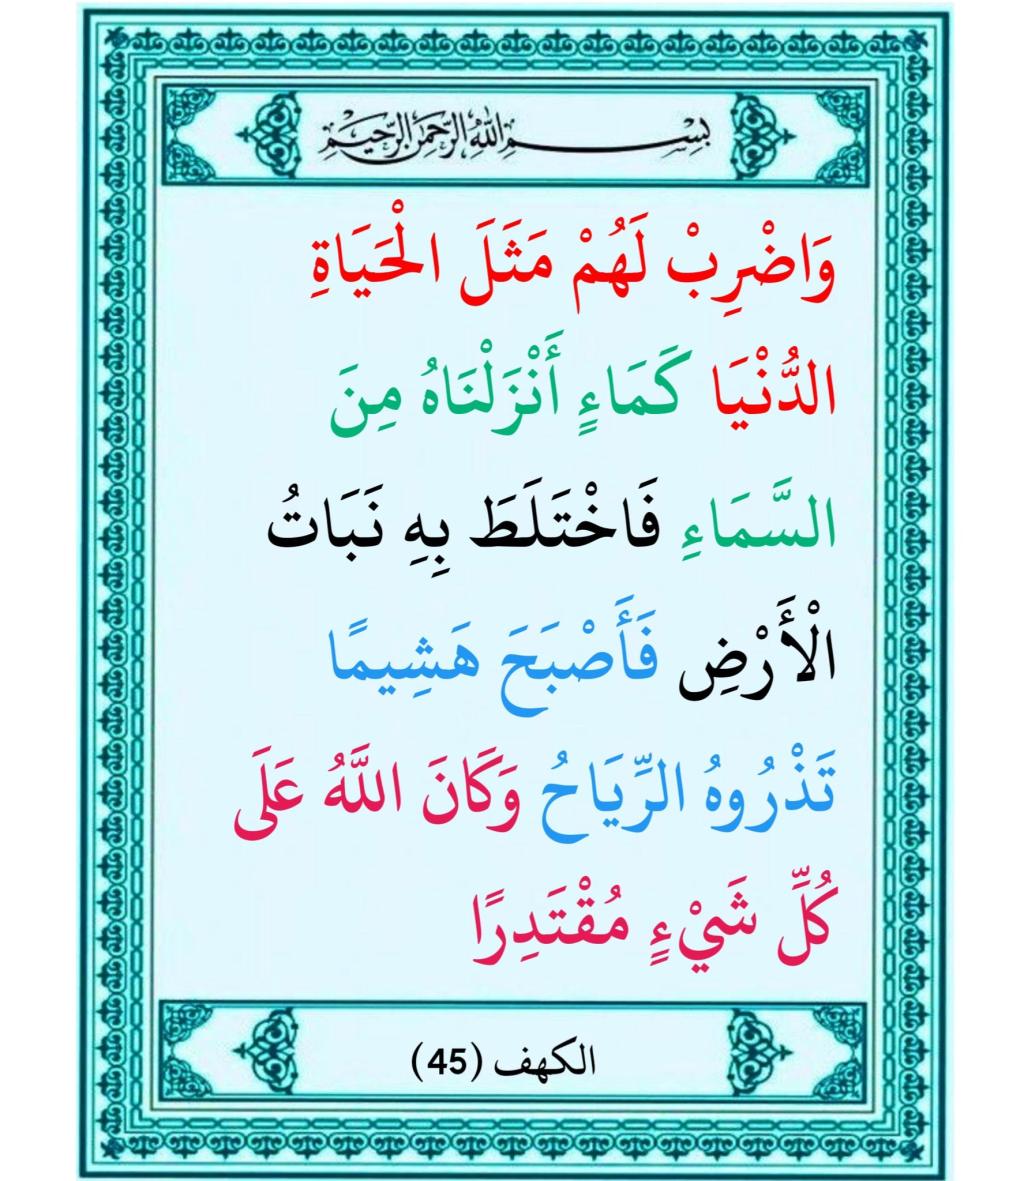 بِسْمِ اللَّهِ الرَّحْمَنِ الرَّحِيمِ
وَاضْرِبْ لَهُمْ مَثَلَ الْحَيَاةِ
الدُّنْيَا كَمَاءٍ أَنْزَلْنَاهُ مِنَ
السَّمَاءِ فَاخْتَلَطَ بِهِ نَبَاتُ
الْأَرْضِ فَأَصْبَحَ هَشِيمًا
تَذْرُوهُ الرِّيَاحُ وَكَانَ اللَّهُ عَلَى
كُلِّ شَيْءٍ مُقْتَدِرًا
الكهف (45)